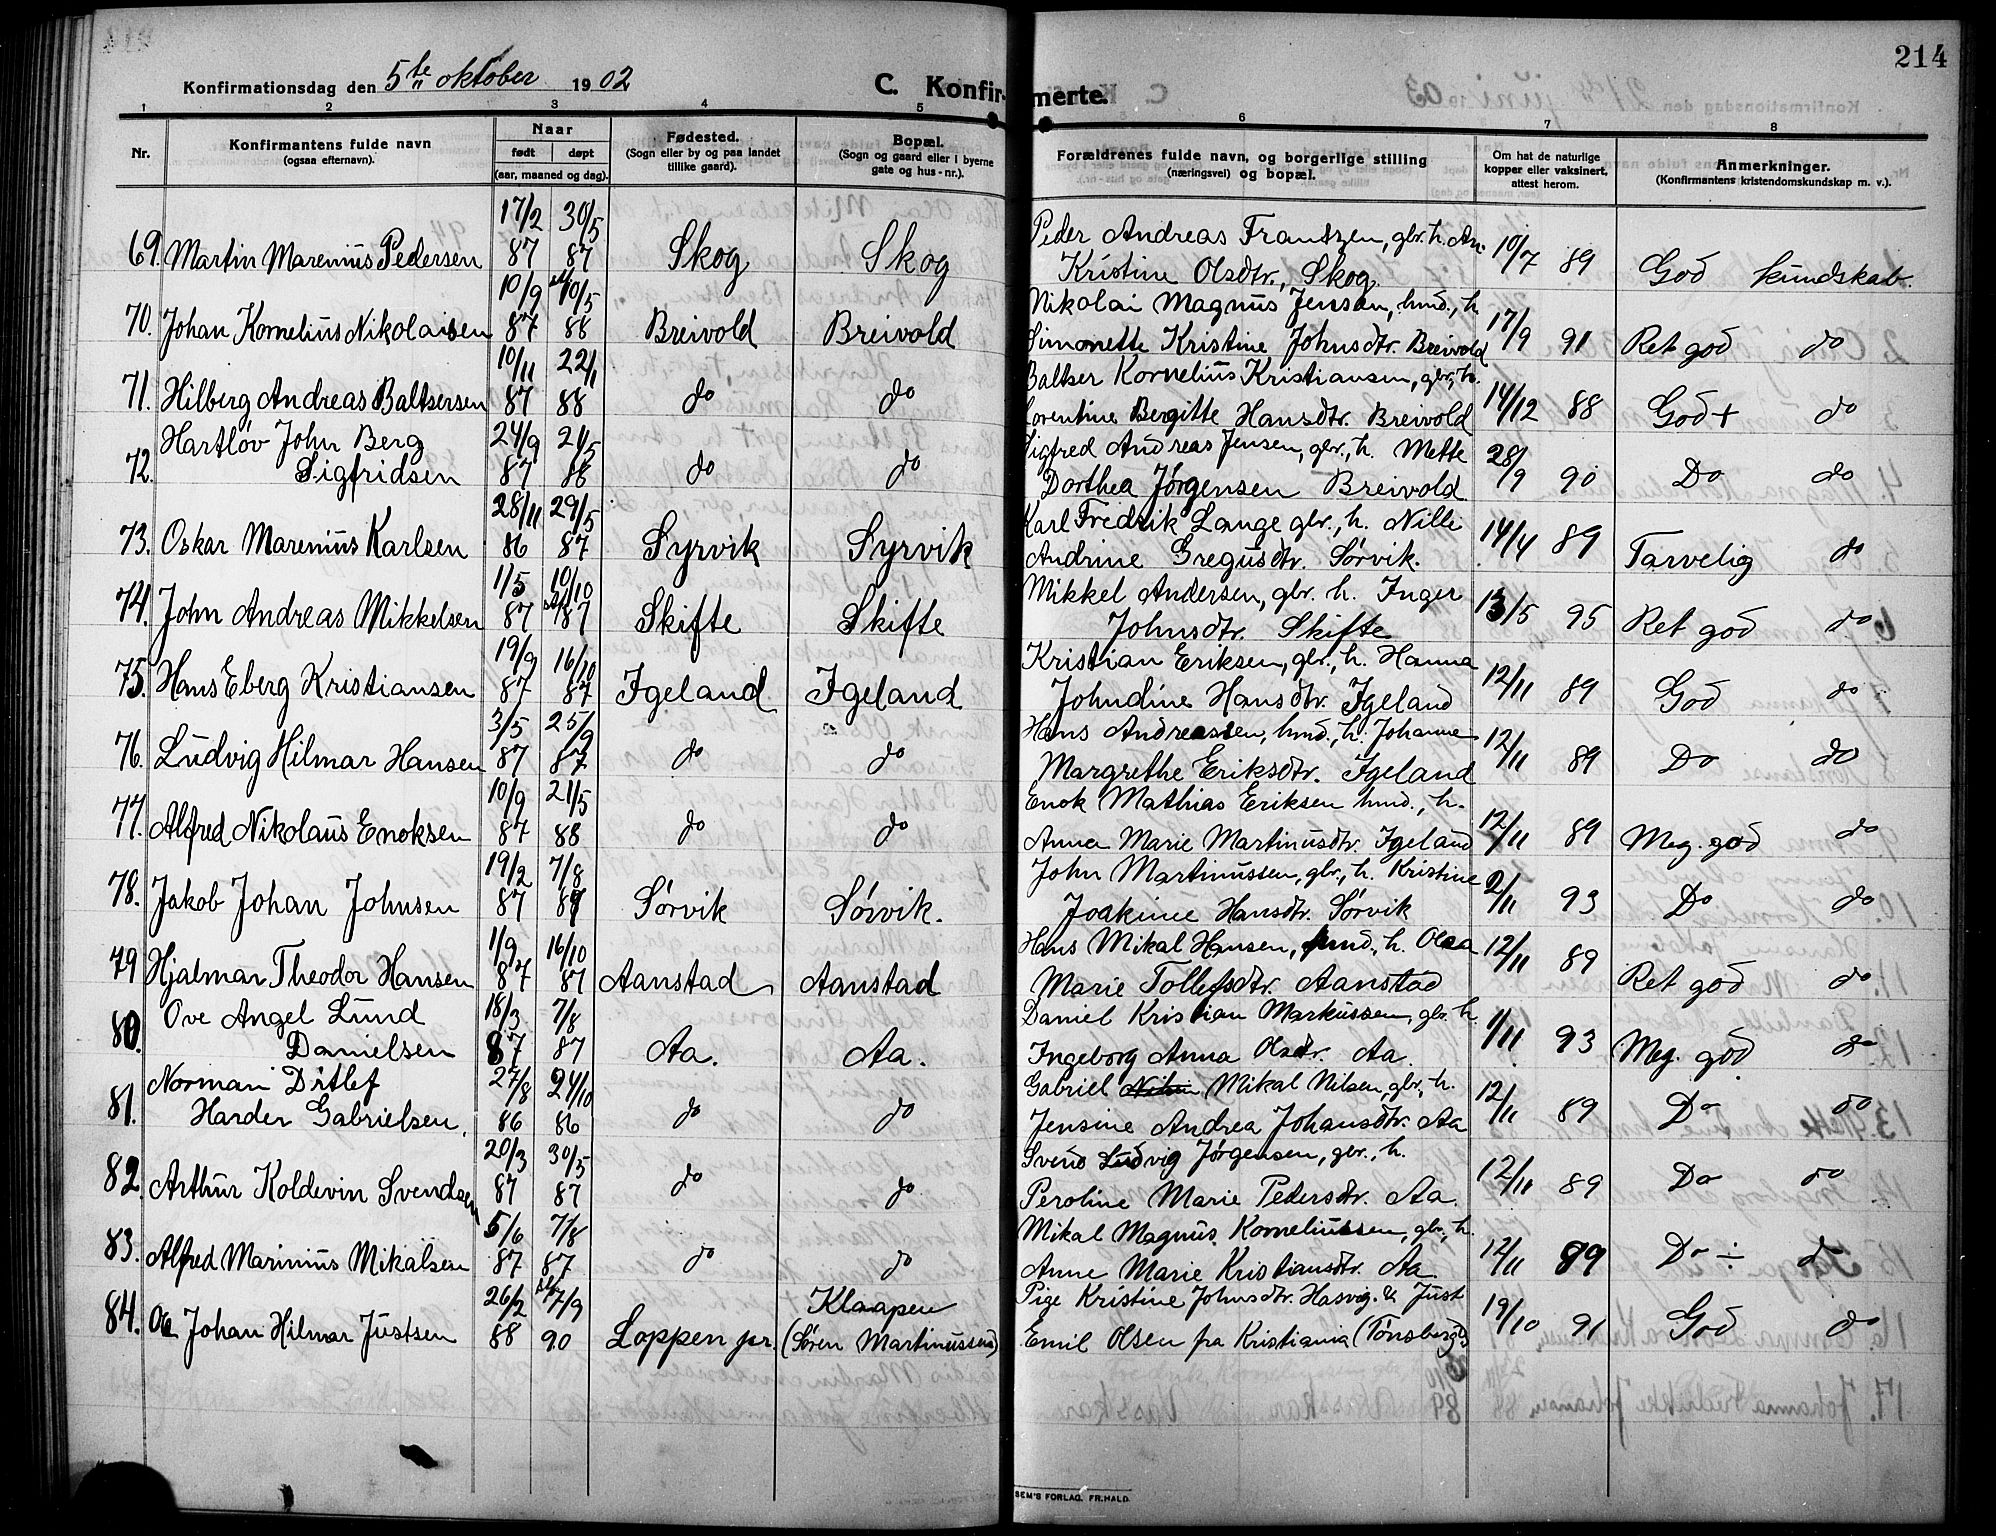 214
Konfirmationsdag den 5te oktober 1902
C. Konfirmerte.
1 2 3 4 5 6 7 8
Nr.
Konfirmantens fulde navn
(ogsaa efternavn).
Naar
født døpt
(aar, maaned og dag).
Fødested.
(Sogn eller by og paa landet
tillike gaard).
Bopæl.
(Sogn og gaard eller i byerne
gate og hus-nr.).
Forældrenes fulde navn, og borgerlige stilling
(næringsvei) og bopæl.
Om hat de naturlige
kopper eller vaksinert,
attest herom.
Anmerkninger.
(Konfirmantens kristendomskundskap m. v.).
17/2 30/5 Peder Andreas Frantzen, gbr. h. An.
69. Martin Marenius Pedersen 87 87 Skog Skog Kristine Olsdtr., Skog 10/7 89 God kundskab.
10/9 10/5 Nikolai Magnus Jensen, hmd., h.
70. Johan Kornelius Nikolaisen 87 88 Breivold Breivold Simonette Kristine Johnsdtr. Breivold 17/9 91 Ret god do
10/11 22/1 Baltser Kornelius Kristiansen, gbr., h.
71. Hilberg Andreas Baltsersen 87 88 do do Lorentine Bergitte Hansdtr. Breivold 14/12 88 God+ do
Hartløv John Berg 24/9 21/5 Sigfred Andreas Jensen, gbr., h. Mette
72. Sigfridsen 87 88 do do Dorthea Jørgensen Breivold 28/9 90 Do do
28/11 29/5 Karl Fredrik Lange gbr., h. Nille
73. Oskar Marenius Karlsen 86 87 Syrvik Syrvik Andrine Gregusdtr. Sørvik. 14/4 89 Tarvelig do
1/5 10/10 Mikkel Andersen, gbr. h. Inger
74. John Andreas Mikkelsen 87 87 Skifte Skifte Johnsdtr. Skifte 13/5 95 Ret god do
19/9 16/10 Kristian Eriksen, gbr., h. Hanna
75. Hans Eberg Kristiansen 87 87 Igeland Igeland Johndine Hansdtr. Igeland 12/11 89 God do
3/5 25/9 Hans Andreassen, hmd., h. Johanne
76. Ludvig Hilmar Hansen 87 87 do do Margrethe Eriksdtr. Igeland 12/11 89 Do do
10/9 21/5 Enok Mathias Eriksen hmd., h.
77. Alfred Nikolaus Enoksen 87 88 do do Anna Marie Martinusdtr. Igeland 12/11 89 Meg. god do
19/2 7/8 John Martinussen, gbr., h. Kristine
78. Jakob Johan Johnsen 87 87 Sørvik Sørvik. Joakime Hansdtr. Sørvik 2/11 93 Do do
1/9 16/10 Hans Mikal Hansen, hmd., h. Olea
79 Hjalmar Theodor Hansen 87 87 Aanstad Aanstad Marie Tollefsdtr. Aanstad 12/11 89 Ret god do
Ove Angel Lund 18/3 7/8 Daniel Kristian Markussen, gbr. h.
80. Danielsen 87 87 Aa. Aa. Ingeborg Anna Olsdtr. Aa. 1/11 93 Meg. god do
Norman Ditlef 27/8 24/10 Gabriel Mikal Nilsen, gbr., h.
81. Harder Gabrielsen, 86 86 do do Jensine Andrea Johansdtr. Aa 12/11 89 Do do
20/3 30/5 Svend Ludvig Jørgensen, gbr., h.
82. Arthur Koldevin Svendsen 87 87 do do Peroline Marie Pedersdtr. Aa. 12/11 89 Do do
5/6 7/8 Mikal Magnus Korneliussen, gbr., h.
83. Alfred Marinius Mikalsen 87 87 do do Anne Marie Kristiansdtr. Aa. 12/11 89 Do ÷ do
26/2 7/9 Klaapen Pige Kristine Johnsdtr. Hasvig. & Just
84. Johan Hilmar Justsen 88 90 Loppen pr. (Søren Martinussen) Emil Olsen fra Kristiania (Tønsberg) 19/10 91 God do
SEM'S FORLAG, FR.HALD.